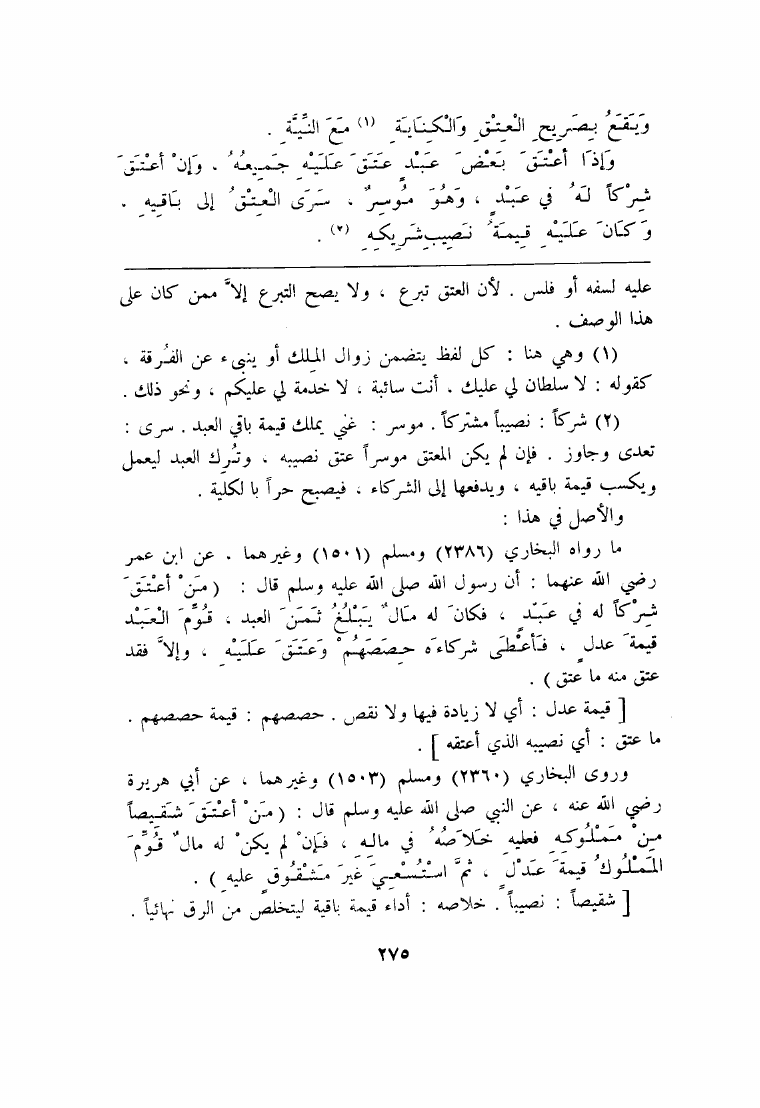 وَيَقَعُ بِصَرِيحِ الْعِتْقِ وَالْكِنَايَةِ (١) مَعَ النِّيَّةِ .
وَإِذَا أَعْتَقَ بَعْضَ عَبْدٍ عَتَقَ عَلَيْهِ جَمِيعُهُ . وَإِنْ أَعْتَقَ
شِرْكاً لَهُ في عَبْدٍ ، وَهُوَ مُوسِرٌ ، سَرَى الْعِتْقُ إلى بَاقِيهِ .
وَكَانَ عَلَيْهِ قِيمَةُ نَصِيبِ شَرِيكِهِ (٢) .
عليه لسفه أو فلس . لأن العتق تبرع ، ولا يصح التبرع إلاَّ ممن كان على
هذا الوصف .
(١) وهي هنا : كل لفظ يتضمن زوال الملك أو ينبىء عن الفُرقة ،
كقوله : لا سلطان لي عليك . أنت سائبة ، لا خدمة لي عليكم ، ونحو ذلك .
(٢) شركاً : نصيباً مشتركاً . موسر : غني يملك قيمة باقي العبد . سرى :
تعدى وجاوز . فإن لم يكن المعتق موسراً عتق نصيبه ، وتُرك العبد ليعمل
ويكسب قيمة باقيه ، ويدفعها إلى الشركاء ، فيصبح حراً با لكلية .
والأصل في هذا :
ما رواه البخاري (٢٣٨٦) ومسلم (١٥٠١) وغيرهما . عن ابن عمر
رضي الله عنهما : أن رسول الله صلى الله عليه وسلم قال : ( مَنْ أعْتَقَ
شِرْكاً له في عَبْدٍ ، فكانَ له مَالٌ يَبْلُغُ ثَمَنَ العبد ، قُوِّمَ الْعَبْد
قيمةَ عدل ، فَأعْطَى شركاءَه حِصَصَهُمْ وَعَتَقَ عَلَيْهِ ، وإلاَّ فقد
عتق منه ما عتق ) .
[ قيمة عدل : أي لا زيادة فيها ولا نقص . حصصهم : قيمة حصصهم .
ما عتق : أي نصيبه الذي أعتقه ] .
وروى البخاري (٢٣٦٠) ومسلم (١٥٠٣) وغيرهما ، عن أبي هريرة
رضي الله عنه ، عن النبي صلى الله عليه وسلم قال : ( مَنْ أعْتَقَ شَقِيصاً
مِنْ مَمْلُوكِهِ فعليه خَلاَصُهُ في مالِهِ ، فَإنْ لم يكنْ له مالٌ قُوِّمَ
المَمْلُوكُ قيمةَ عَدْلٍ ، ثمَّ اسْتُسْعِيَ غَيرَ مَشْقُوقٍ عليه ) .
[ شقيصاً : نصيباً . خلاصه : أداء قيمة باقية ليتخلص من الرق نهائياً .
٢٧٥